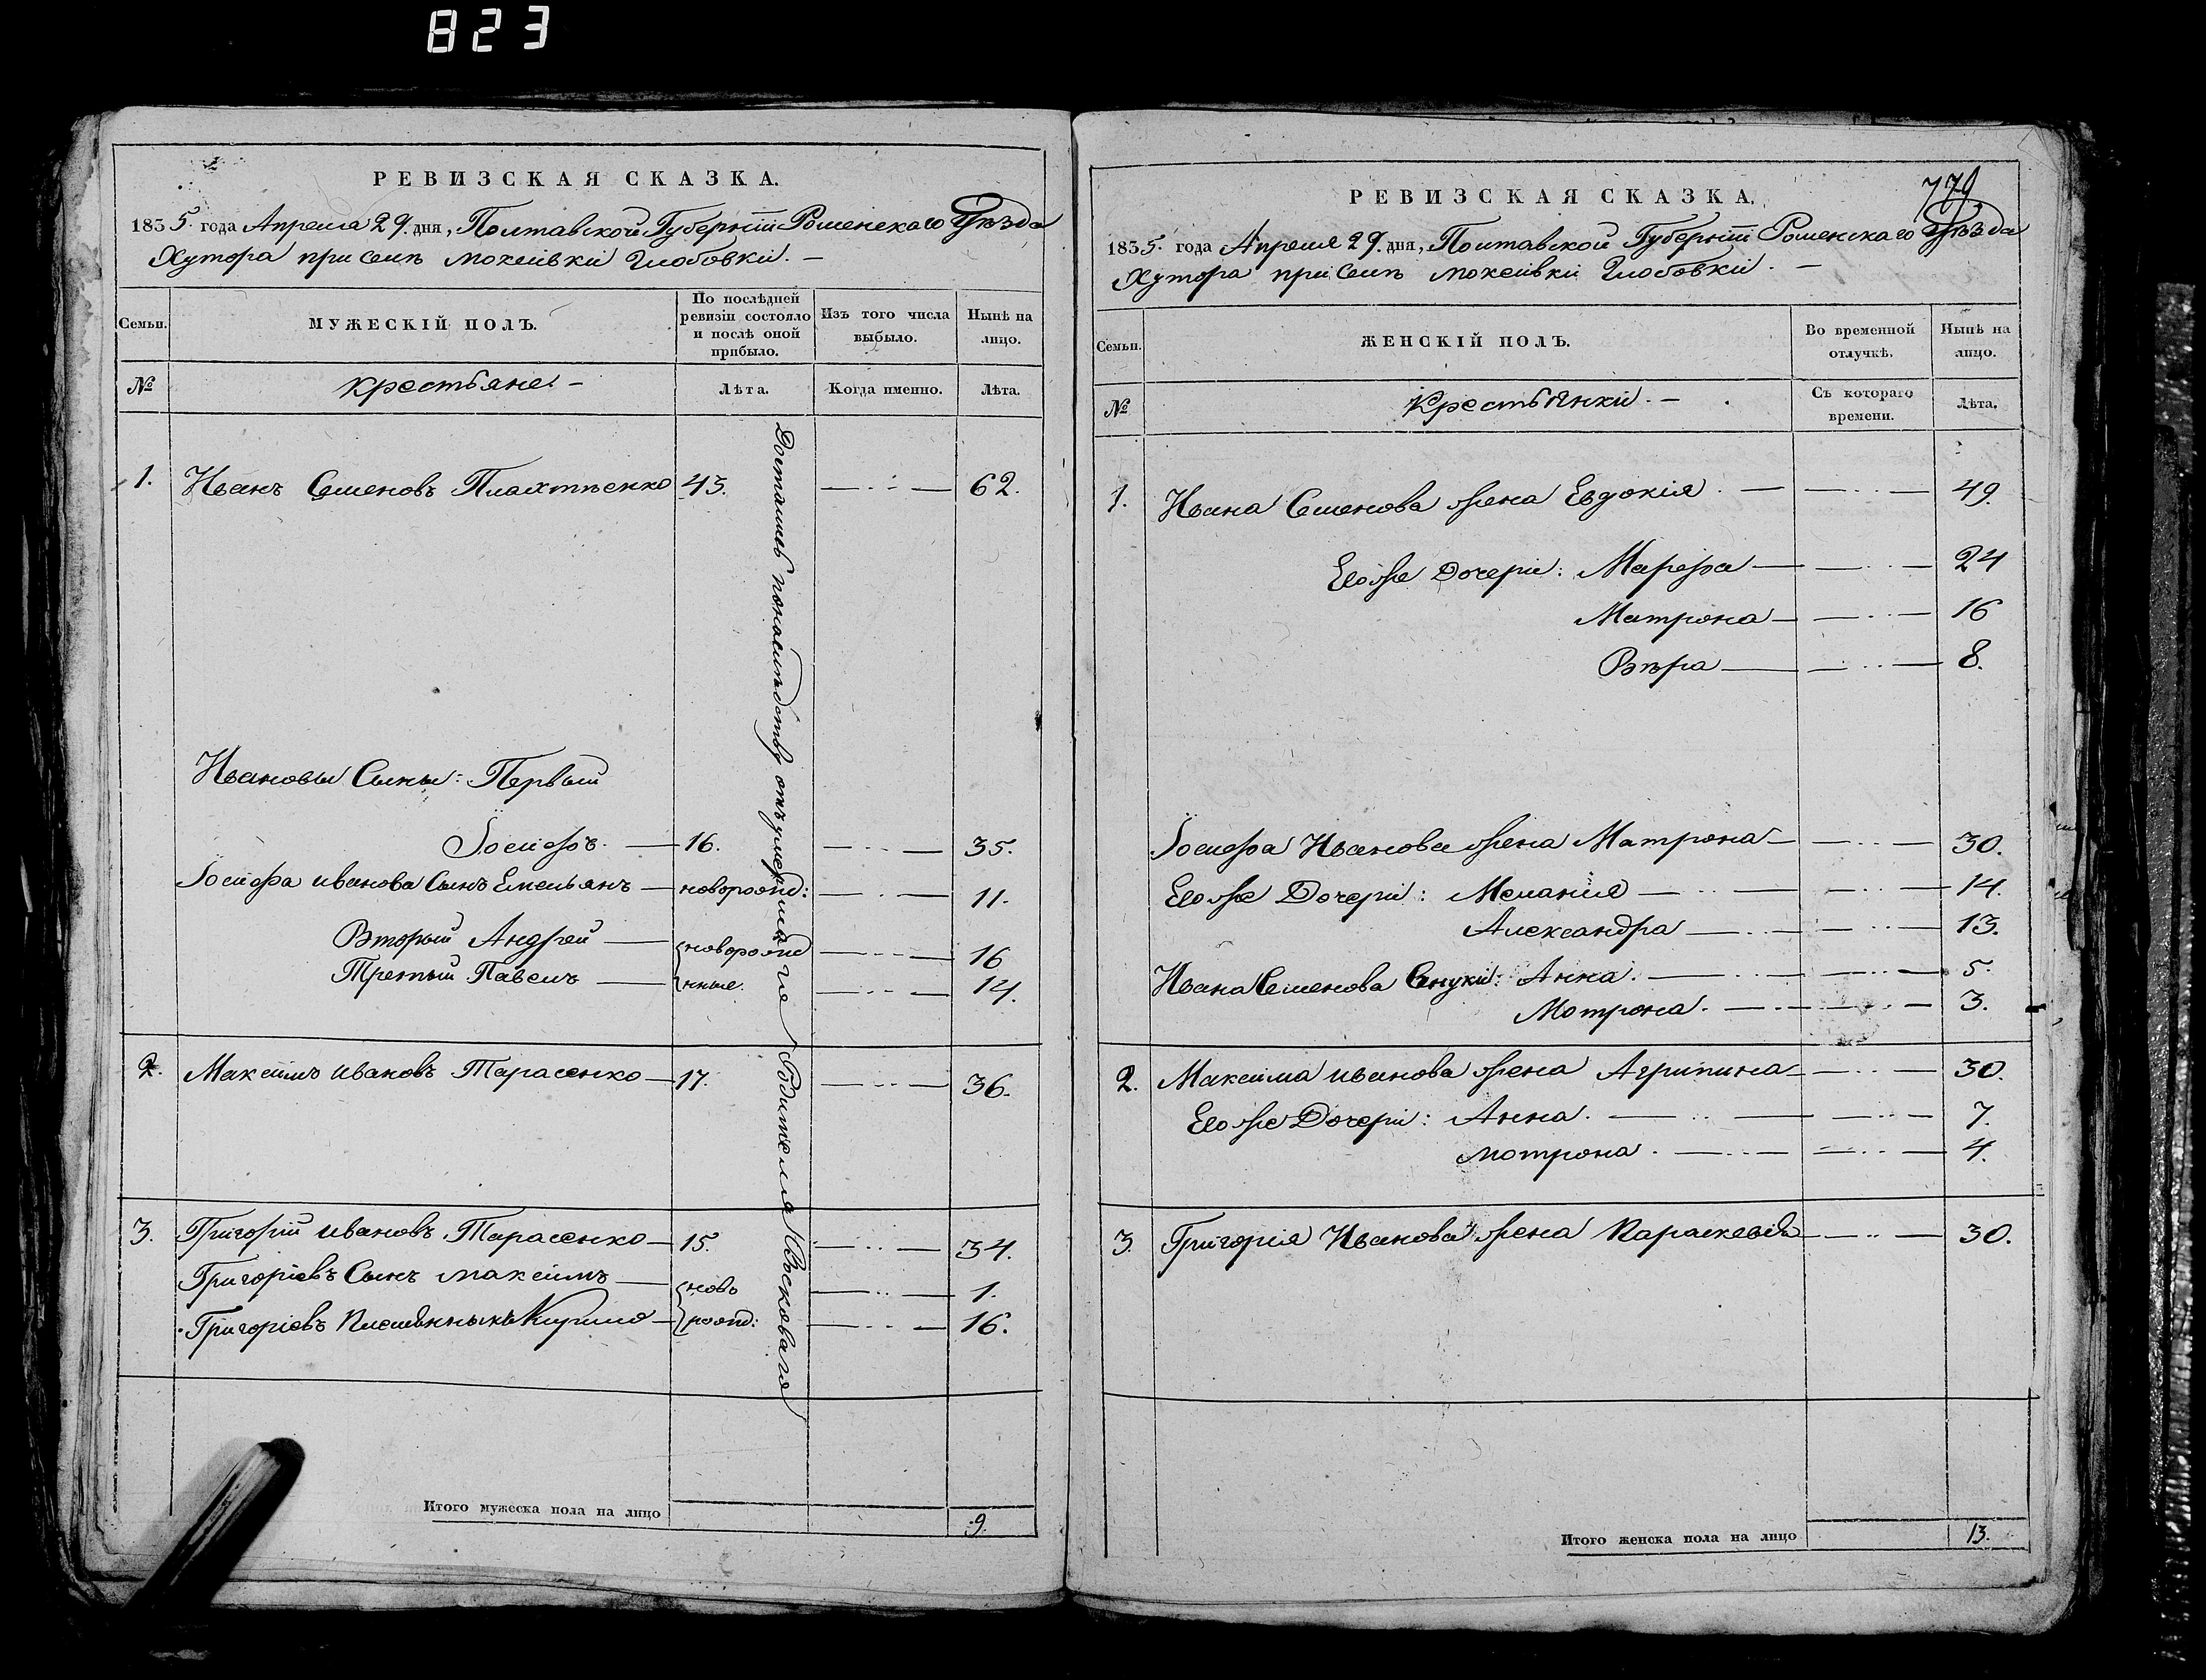 823
РЕВИЗСКАЯ СКАЗКА.
1835. года Апреля 29. дня, Полтавской Губерніи Роменскаго Уѣзда
Хутора при селѣ Мокеивки Глобовки. —
Семьи.
МУЖЕСКІЙ ПОЛЪ.
По послѣдней ревизіи состояло и послѣ оной прибыло.
Изъ того числа выбыло.
Нынѣ на лицо.
№
крестьяне. —
Лѣта.
Когда именно.
Лѣта.
1. Иванъ Семеновъ Плахтѣенко 43. 62.
Ивановы Сыны: Первый
Іосифъ. — 16. 35.
Іосифа иванова Сынъ Емельянъ — новорожд: 11.
Вторый Андрей — новорожд 16
Третый Павелъ — нные. 14.
2. Максимъ ивановъ Тарасенко — 17. 36.
3. Григорій ивановъ Тарасенко — 15. 34.
Григоріевъ Сынъ Максимъ — ново 1.
Григоріевъ Племѣнныкъ — рожд: 16.
Достались понаслѣдству отъ умершаго Родителя
Итого мужеска пола на лицо 9.
779
РЕВИЗСКАЯ СКАЗКА.
1835. года Апреля 29. дня, Полтавской Губерніи Роменскаго Уѣзда
Хутора при Селѣ Мокеивки Глобовки. —
Семьи.
ЖЕНСКІЙ ПОЛЪ.
Во временной отлучкѣ.
Нынѣ на лицо.
№
Крестьянки. —
Съ котораго времени.
Лѣта.
1. Ивана Семенова жена Евдокія. — 49.
Его же Дочери: Марфа — 24
Матрона — 16
Вѣра — 8.
Іосифа Иванова жена Матрона — 30.
Его же Дочери: Меланія — 14.
Александра — 13.
Ивана Семенова Внуки: Анна. — 5.
Мотрона. — 3.
2. Максима иванова жена Агрипина — 30.
Его же Дочери: Анна. — 7.
мотрона. — 4.
3. Григорія Иванова жена Параскевія — 30.
Итого женска пола на лицо 13.